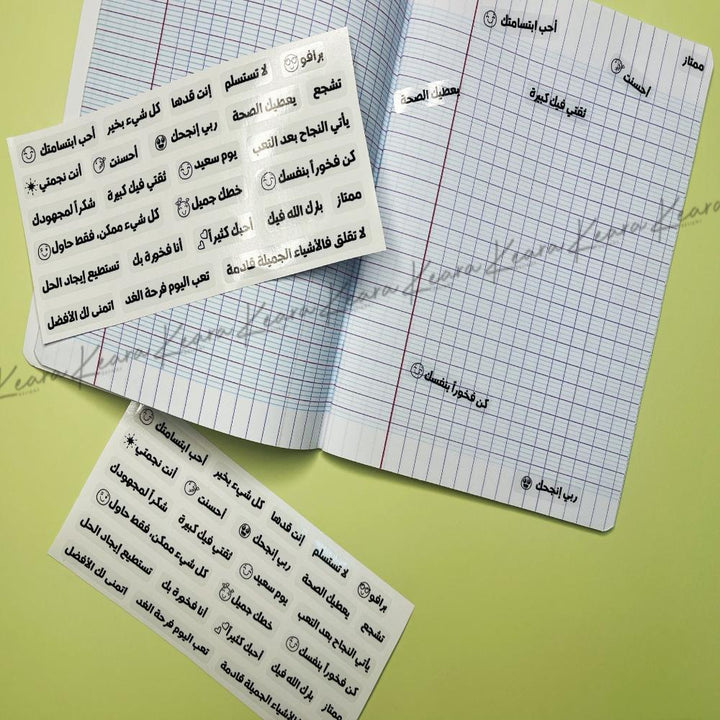 أحب ابتسامتك
كل شيء بخير
إنت قدها
لا تستسلم
برافو
أنت نجمتي
أحسنت
ربي إنجحك
يعطيك الصحة
تشجع
شكراً لمجهودك
ثقتي فيك كبيرة
يوم سعيد
يأتي النجاح بعد التعب
كل شيء ممكن، فقط حاول
خطك جميل
كن فخوراً بنفسك
تستطيع إيجاد الحل
أنا فخورة بك
أحبك كثيراً
بارك الله فيك
ممتاز
اتمنى لك الأفضل
تعب اليوم فرحة الغد
لا تقلق فالأشياء الجميلة قادمة
أحب ابتسامتك
ممتاز
أحسنت
يعطيك الصحة
ثقتي فيك كبيرة
كن فخوراً بنفسك
ربي إنجحك
Keara Keara Keara Keara Keara Keara Keara Keara Keara
أحب ابتسامتك
كل شيء بخير
إنت قدها
لا تستسلم
برافو
أنت نجمتي
أحسنت
ربي إنجحك
يعطيك الصحة
تشجع
شكراً لمجهودك
ثقتي فيك كبيرة
يوم سعيد
يأتي النجاح بعد التعب
كل شيء ممكن، فقط حاول
خطك جميل
كن فخوراً بنفسك
تستطيع إيجاد الحل
أنا فخورة بك
أحبك كثيراً
بارك الله فيك
ممتاز
اتمنى لك الأفضل
تعب اليوم فرحة الغد
الأشياء الجميلة قادمة